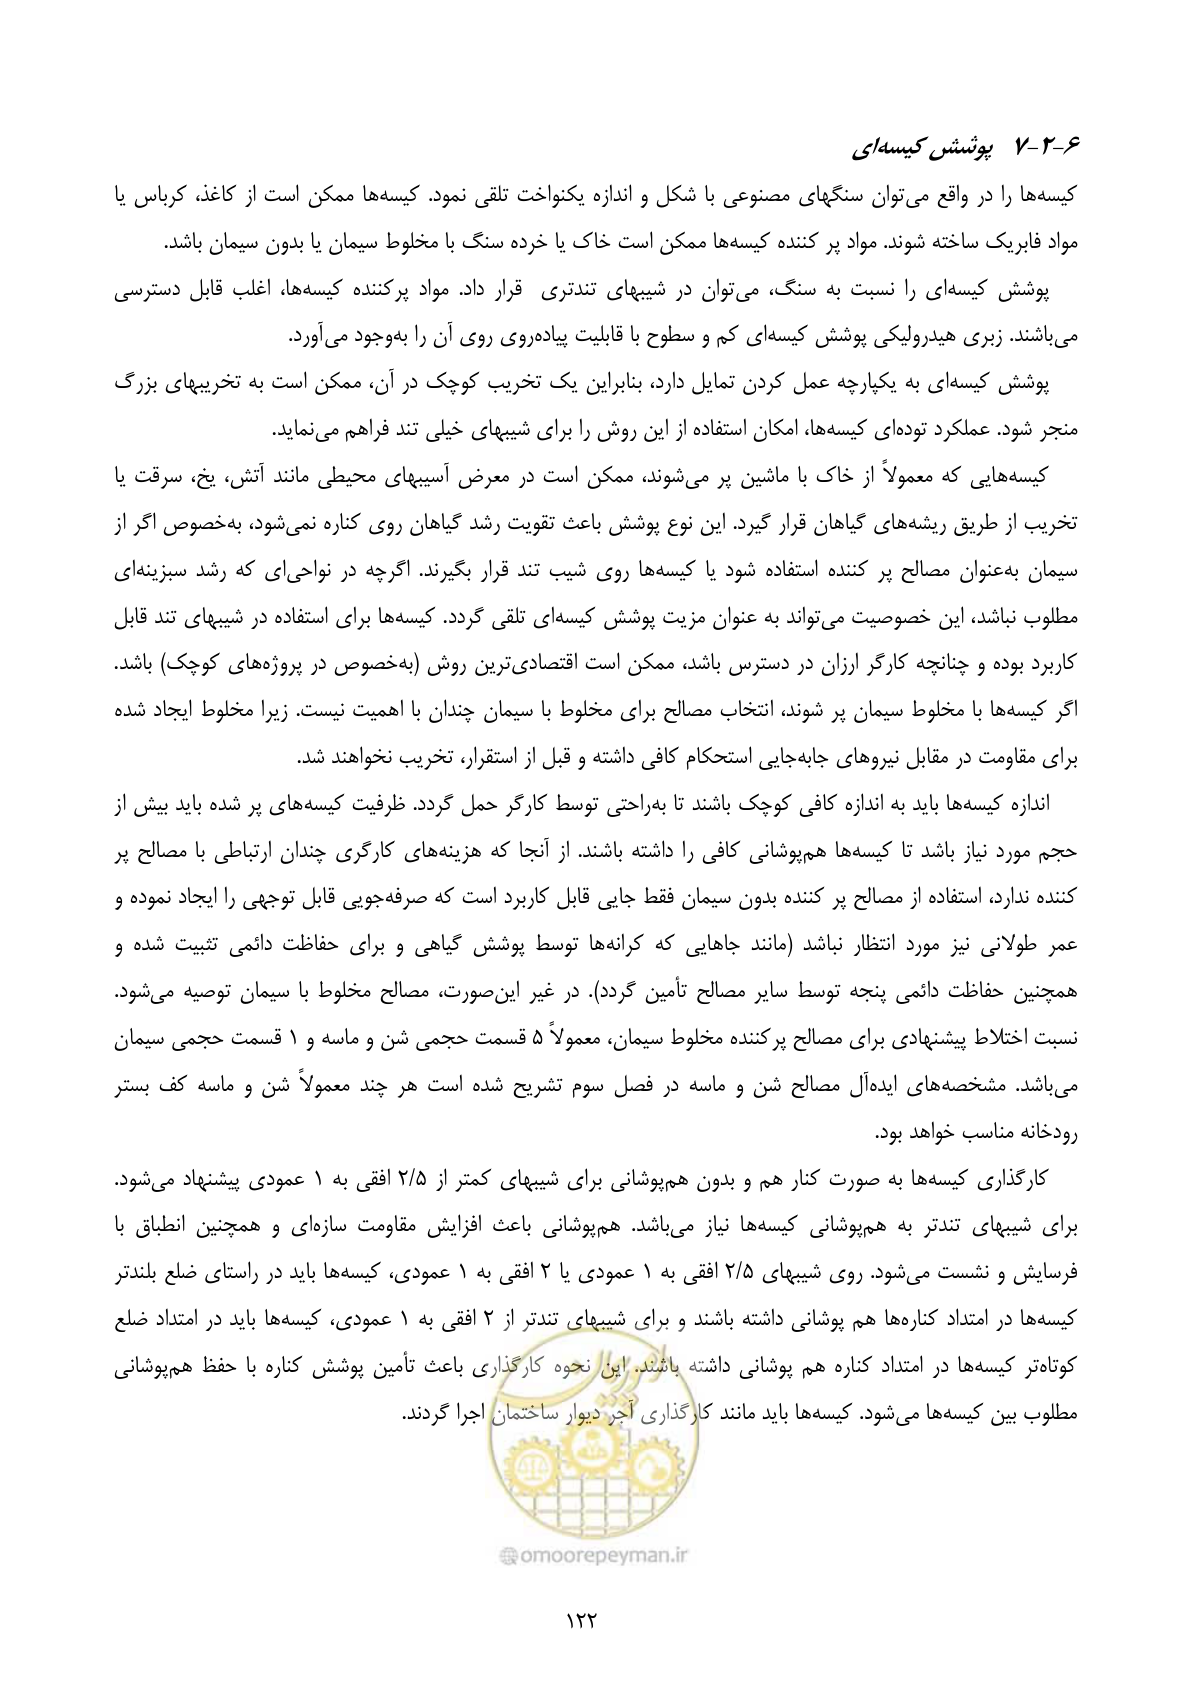 ۷-۲-۶ پوشش کیسه‌ای
کیسه‌ها را در واقع می‌توان سنگهای مصنوعی با شکل و اندازه یکنواخت تلقی نمود. کیسه‌ها ممکن است از کاغذ، کرباس یا
مواد فابریک ساخته شوند. مواد پر کننده کیسه‌ها ممکن است خاک یا خرده سنگ با مخلوط سیمان یا بدون سیمان باشد.
پوشش کیسه‌ای را نسبت به سنگ، می‌توان در شیبهای تندتری قرار داد. مواد پرکننده کیسه‌ها، اغلب قابل دسترسی
می‌باشند. زبری هیدرولیکی پوشش کیسه‌ای کم و سطوح با قابلیت پیاده‌روی روی آن را به‌وجود می‌آورد.
پوشش کیسه‌ای به یکپارچه عمل کردن تمایل دارد، بنابراین یک تخریب کوچک در آن، ممکن است به تخریبهای بزرگ
منجر شود. عملکرد توده‌ای کیسه‌ها، امکان استفاده از این روش را برای شیبهای خیلی تند فراهم می‌نماید.
کیسه‌هایی که معمولاً از خاک با ماشین پر می‌شوند، ممکن است در معرض آسیبهای محیطی مانند آتش، یخ، سرقت یا
تخریب از طریق ریشه‌های گیاهان قرار گیرد. این نوع پوشش باعث تقویت رشد گیاهان روی کناره نمی‌شود، به‌خصوص اگر از
سیمان به‌عنوان مصالح پر کننده استفاده شود یا کیسه‌ها روی شیب تند قرار بگیرند. اگرچه در نواحی‌ای که رشد سبزینه‌ای
مطلوب نباشد، این خصوصیت می‌تواند به عنوان مزیت پوشش کیسه‌ای تلقی گردد. کیسه‌ها برای استفاده در شیبهای تند قابل
کاربرد بوده و چنانچه کارگر ارزان در دسترس باشد، ممکن است اقتصادی‌ترین روش (به‌خصوص در پروژه‌های کوچک) باشد.
اگر کیسه‌ها با مخلوط سیمان پر شوند، انتخاب مصالح برای مخلوط با سیمان چندان با اهمیت نیست. زیرا مخلوط ایجاد شده
برای مقاومت در مقابل نیروهای جابه‌جایی استحکام کافی داشته و قبل از استقرار، تخریب نخواهند شد.
اندازه کیسه‌ها باید به اندازه کافی کوچک باشند تا به‌راحتی توسط کارگر حمل گردد. ظرفیت کیسه‌های پر شده باید بیش از
حجم مورد نیاز باشد تا کیسه‌ها هم‌پوشانی کافی را داشته باشند. از آنجا که هزینه‌های کارگری چندان ارتباطی با مصالح پر
کننده ندارد، استفاده از مصالح پر کننده بدون سیمان فقط جایی قابل کاربرد است که صرفه‌جویی قابل توجهی را ایجاد نموده و
عمر طولانی نیز مورد انتظار نباشد (مانند جاهایی که کرانه‌ها توسط پوشش گیاهی و برای حفاظت دائمی تثبیت شده و
همچنین حفاظت دائمی پنجه توسط سایر مصالح تأمین گردد). در غیر این‌صورت، مصالح مخلوط با سیمان توصیه می‌شود.
نسبت اختلاط پیشنهادی برای مصالح پرکننده مخلوط سیمان، معمولاً ۵ قسمت حجمی شن و ماسه و ۱ قسمت حجمی سیمان
می‌باشد. مشخصه‌های ایده‌آل مصالح شن و ماسه در فصل سوم تشریح شده است هر چند معمولاً شن و ماسه کف بستر
رودخانه مناسب خواهد بود.
کارگذاری کیسه‌ها به صورت کنار هم و بدون هم‌پوشانی برای شیبهای کمتر از ۲/۵ افقی به ۱ عمودی پیشنهاد می‌شود.
برای شیبهای تندتر به هم‌پوشانی کیسه‌ها نیاز می‌باشد. هم‌پوشانی باعث افزایش مقاومت سازه‌ای و همچنین انطباق با
فرسایش و نشست می‌شود. روی شیبهای ۲/۵ افقی به ۱ عمودی یا ۲ افقی به ۱ عمودی، کیسه‌ها باید در راستای ضلع بلندتر
کیسه‌ها در امتداد کناره‌ها هم پوشانی داشته باشند و برای شیبهای تندتر از ۲ افقی به ۱ عمودی، کیسه‌ها باید در امتداد ضلع
کوتاه‌تر کیسه‌ها در امتداد کناره هم پوشانی داشته باشند. این نحوه کارگذاری باعث تأمین پوشش کناره با حفظ هم‌پوشانی
مطلوب بین کیسه‌ها می‌شود. کیسه‌ها باید مانند کارگذاری آجر دیوار ساختمان اجرا گردند.
امور پیمان
@omoorepeyman.ir
۱۲۲